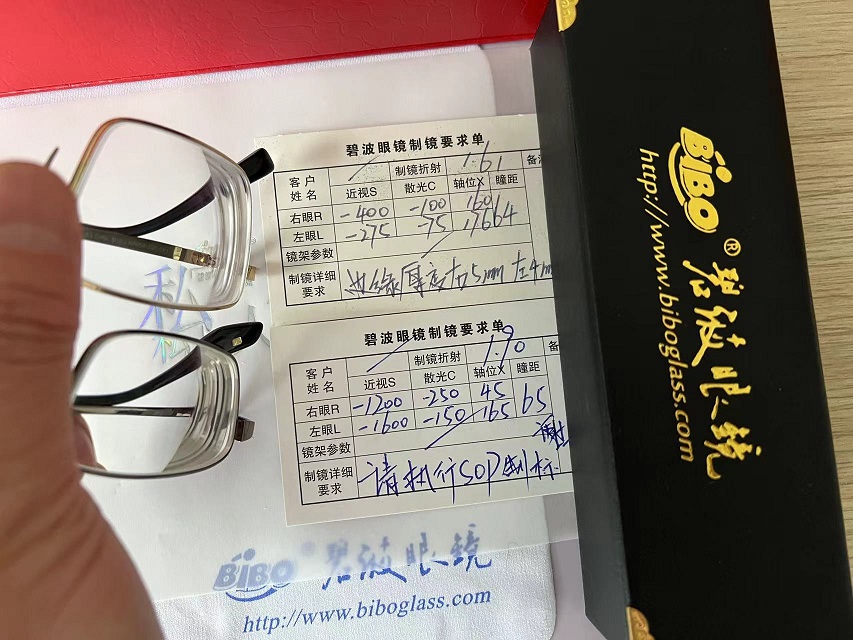 碧波眼镜制镜要求单
客户姓名 制镜折射 1.61 备
近视S 散光C 轴位X 瞳距
右眼R -400 -100 160
左眼L -275 -75 17664
镜架参数
制镜详细要求 边缘厚度右5mm 左4m
碧波眼镜制镜要求单
客户姓名 制镜折射 1.90 备
近视S 散光C 轴位X 瞳距
右眼R -1200 -250 45 65
左眼L -1600 -150 165
镜架参数
制镜详细要求 请执行SOP制标
谢
私
BiBO® 碧波眼镜
http://www.biboglass.com
BiBO® 碧波眼镜
http://www.biboglass.com